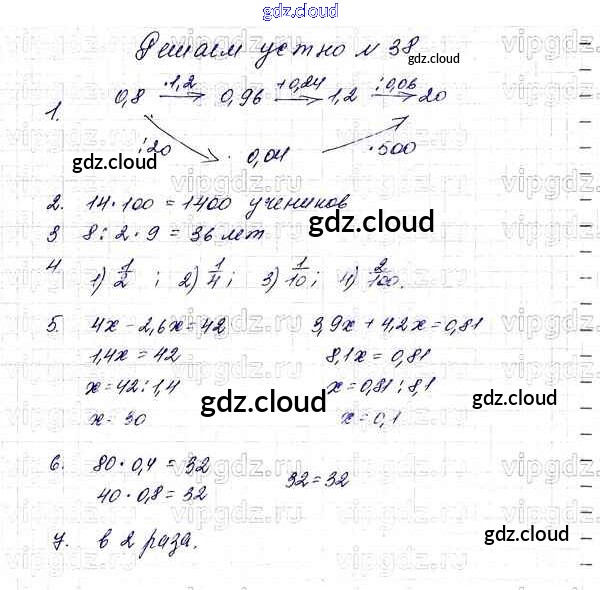 gdz.cloud
gdz.cloud
Решаем устно № 38
gdz.cloud
1. 0,8 ·1,2 → 0,96 +0,24 → 1,2 :0,06 → 20
:20 0,04 ·500
gdz.cloud
gdz.cloud
2. 14·100 = 1400 учеников
gdz.cloud
3 8:2·9 = 36 лет
gdz.cloud
4 1) 1/2 ; 2) 1/4 ; 3) 1/10 ; 4) 2/100.
5. 4x - 2,6x = 42 3,9x + 4,2x = 0,81
1,4x = 42 8,1x = 0,81
x = 42:1,4 x = 0,81:8,1
gdz.cloud
gdz.cloud
x = 30 x = 0,1
6. 80·0,4 = 32 32 = 32
40·0,8 = 32
7. в 2 раза.
gdz.cloud
vipgdz.ru